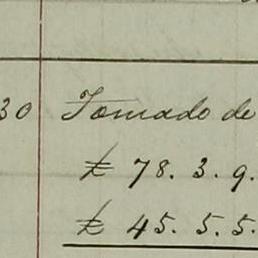 30 Tomado de
£ 78. 3. 9.
£ 45. 5. 5.